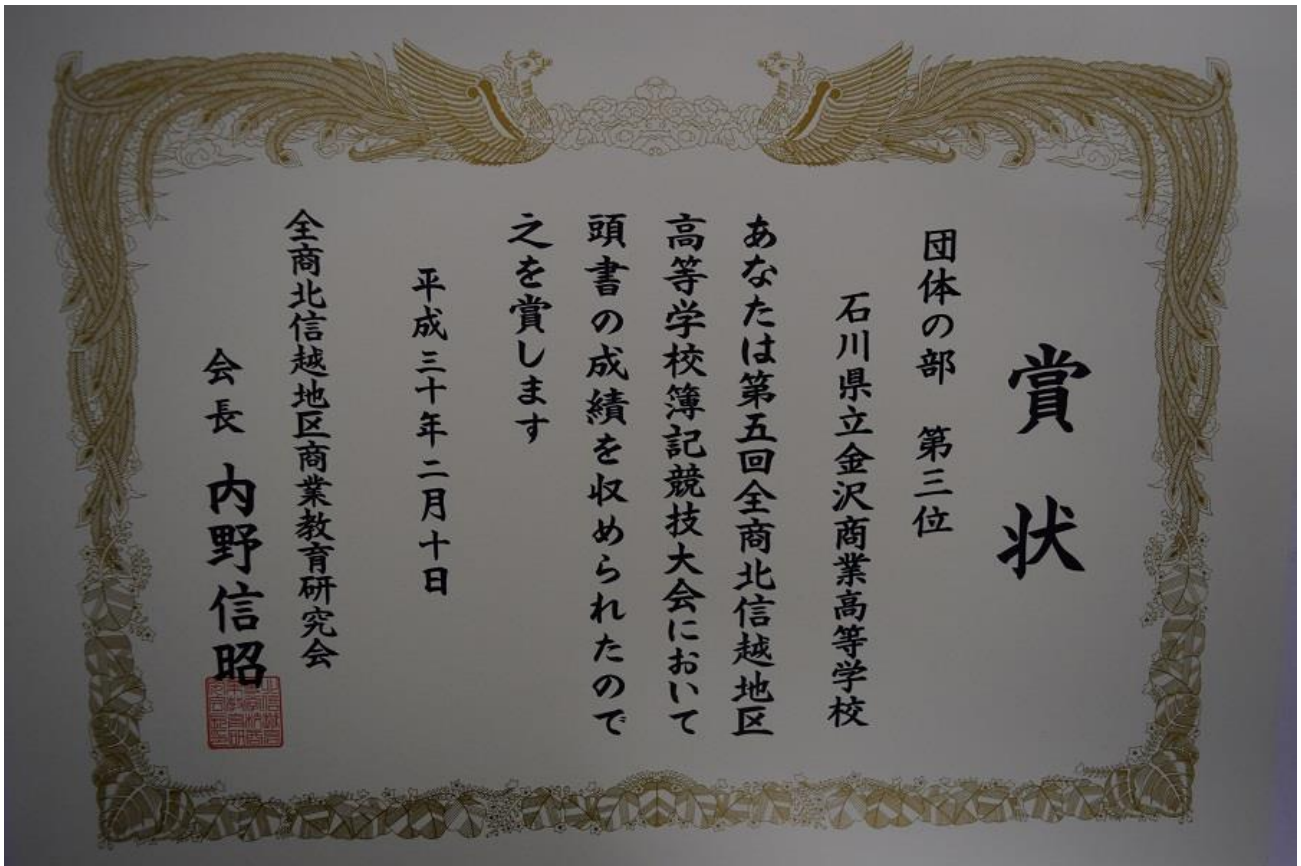 賞状
団体の部 第三位
石川県立金沢商業高等学校
あなたは第五回全商北信越地区
高等学校簿記競技大会において
頭書の成績を収められたので
之を賞します
平成三十年二月十日
全商北信越地区商業教育研究会
会長 内野信昭